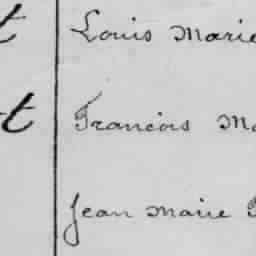 t Louis Marie
t Francois Ma
Jean Marie